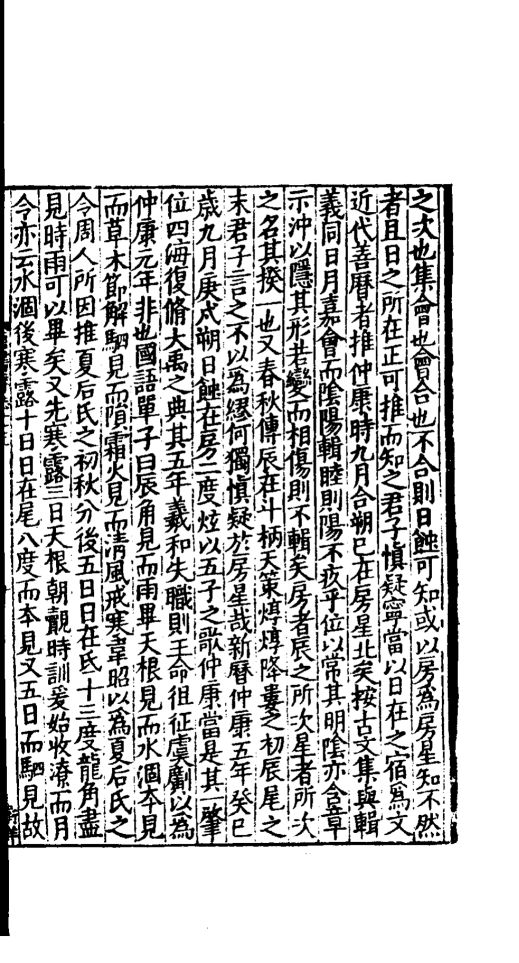 之次也集會也會合也不合則日蝕可知或以房為房星知不然
者且日之所在正可推而知之君子慎疑寧當以日在之宿為文
近代善曆者推仲康時九月合朔已在房星北矣按古文集與輯
義同日月嘉會而陰陽輯睦則陽不疚乎位以常其明陰亦含章
示沖以隱其形若變而相傷則不輯矣房者辰之所次星者所次
之名其揆一也又春秋傳辰在斗柄天策焞焞降婁之初辰尾之
末君子言之不以為繆何獨慎疑於房星哉新曆仲康五年癸巳
歲九月庚戌朔日蝕在房二度炫以五子之歌仲康當是其一肇
位四海復脩大禹之典其五年羲和失職則王命徂征虞𠠎以為
仲康元年非也國語單子曰辰角見而雨畢天根見而水涸本見
而草木節解駟見而隕霜火見而清風戒寒韋昭以為夏后氏之
令周人所因推夏后氏之初秋分後五日日在氐十三度龍角盡
見時雨可以畢矣又先寒露三日天根朝覿時訓爰始收潦而月
令亦云水涸後寒露十日日在尾八度而本見又五日而駟見故